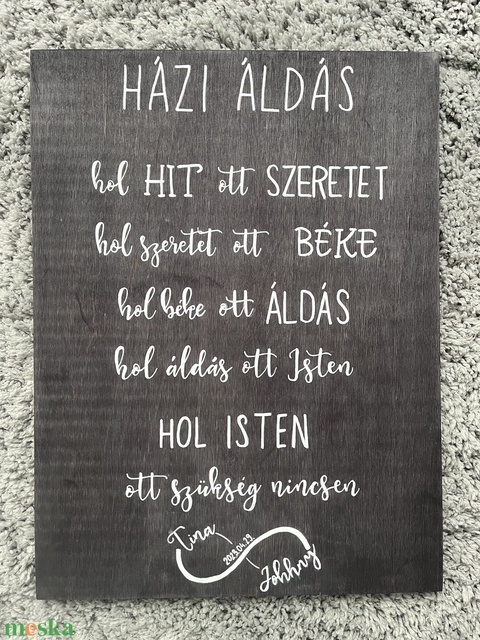 HÁZI ÁLDÁS
hol HIT ott SZERETET
hol szeretet ott BÉKE
hol béke ott ÁLDÁS
hol áldás ott Isten
HOL ISTEN
ott szükség nincsen
Tina
2023.04.29.
Johhny
meska